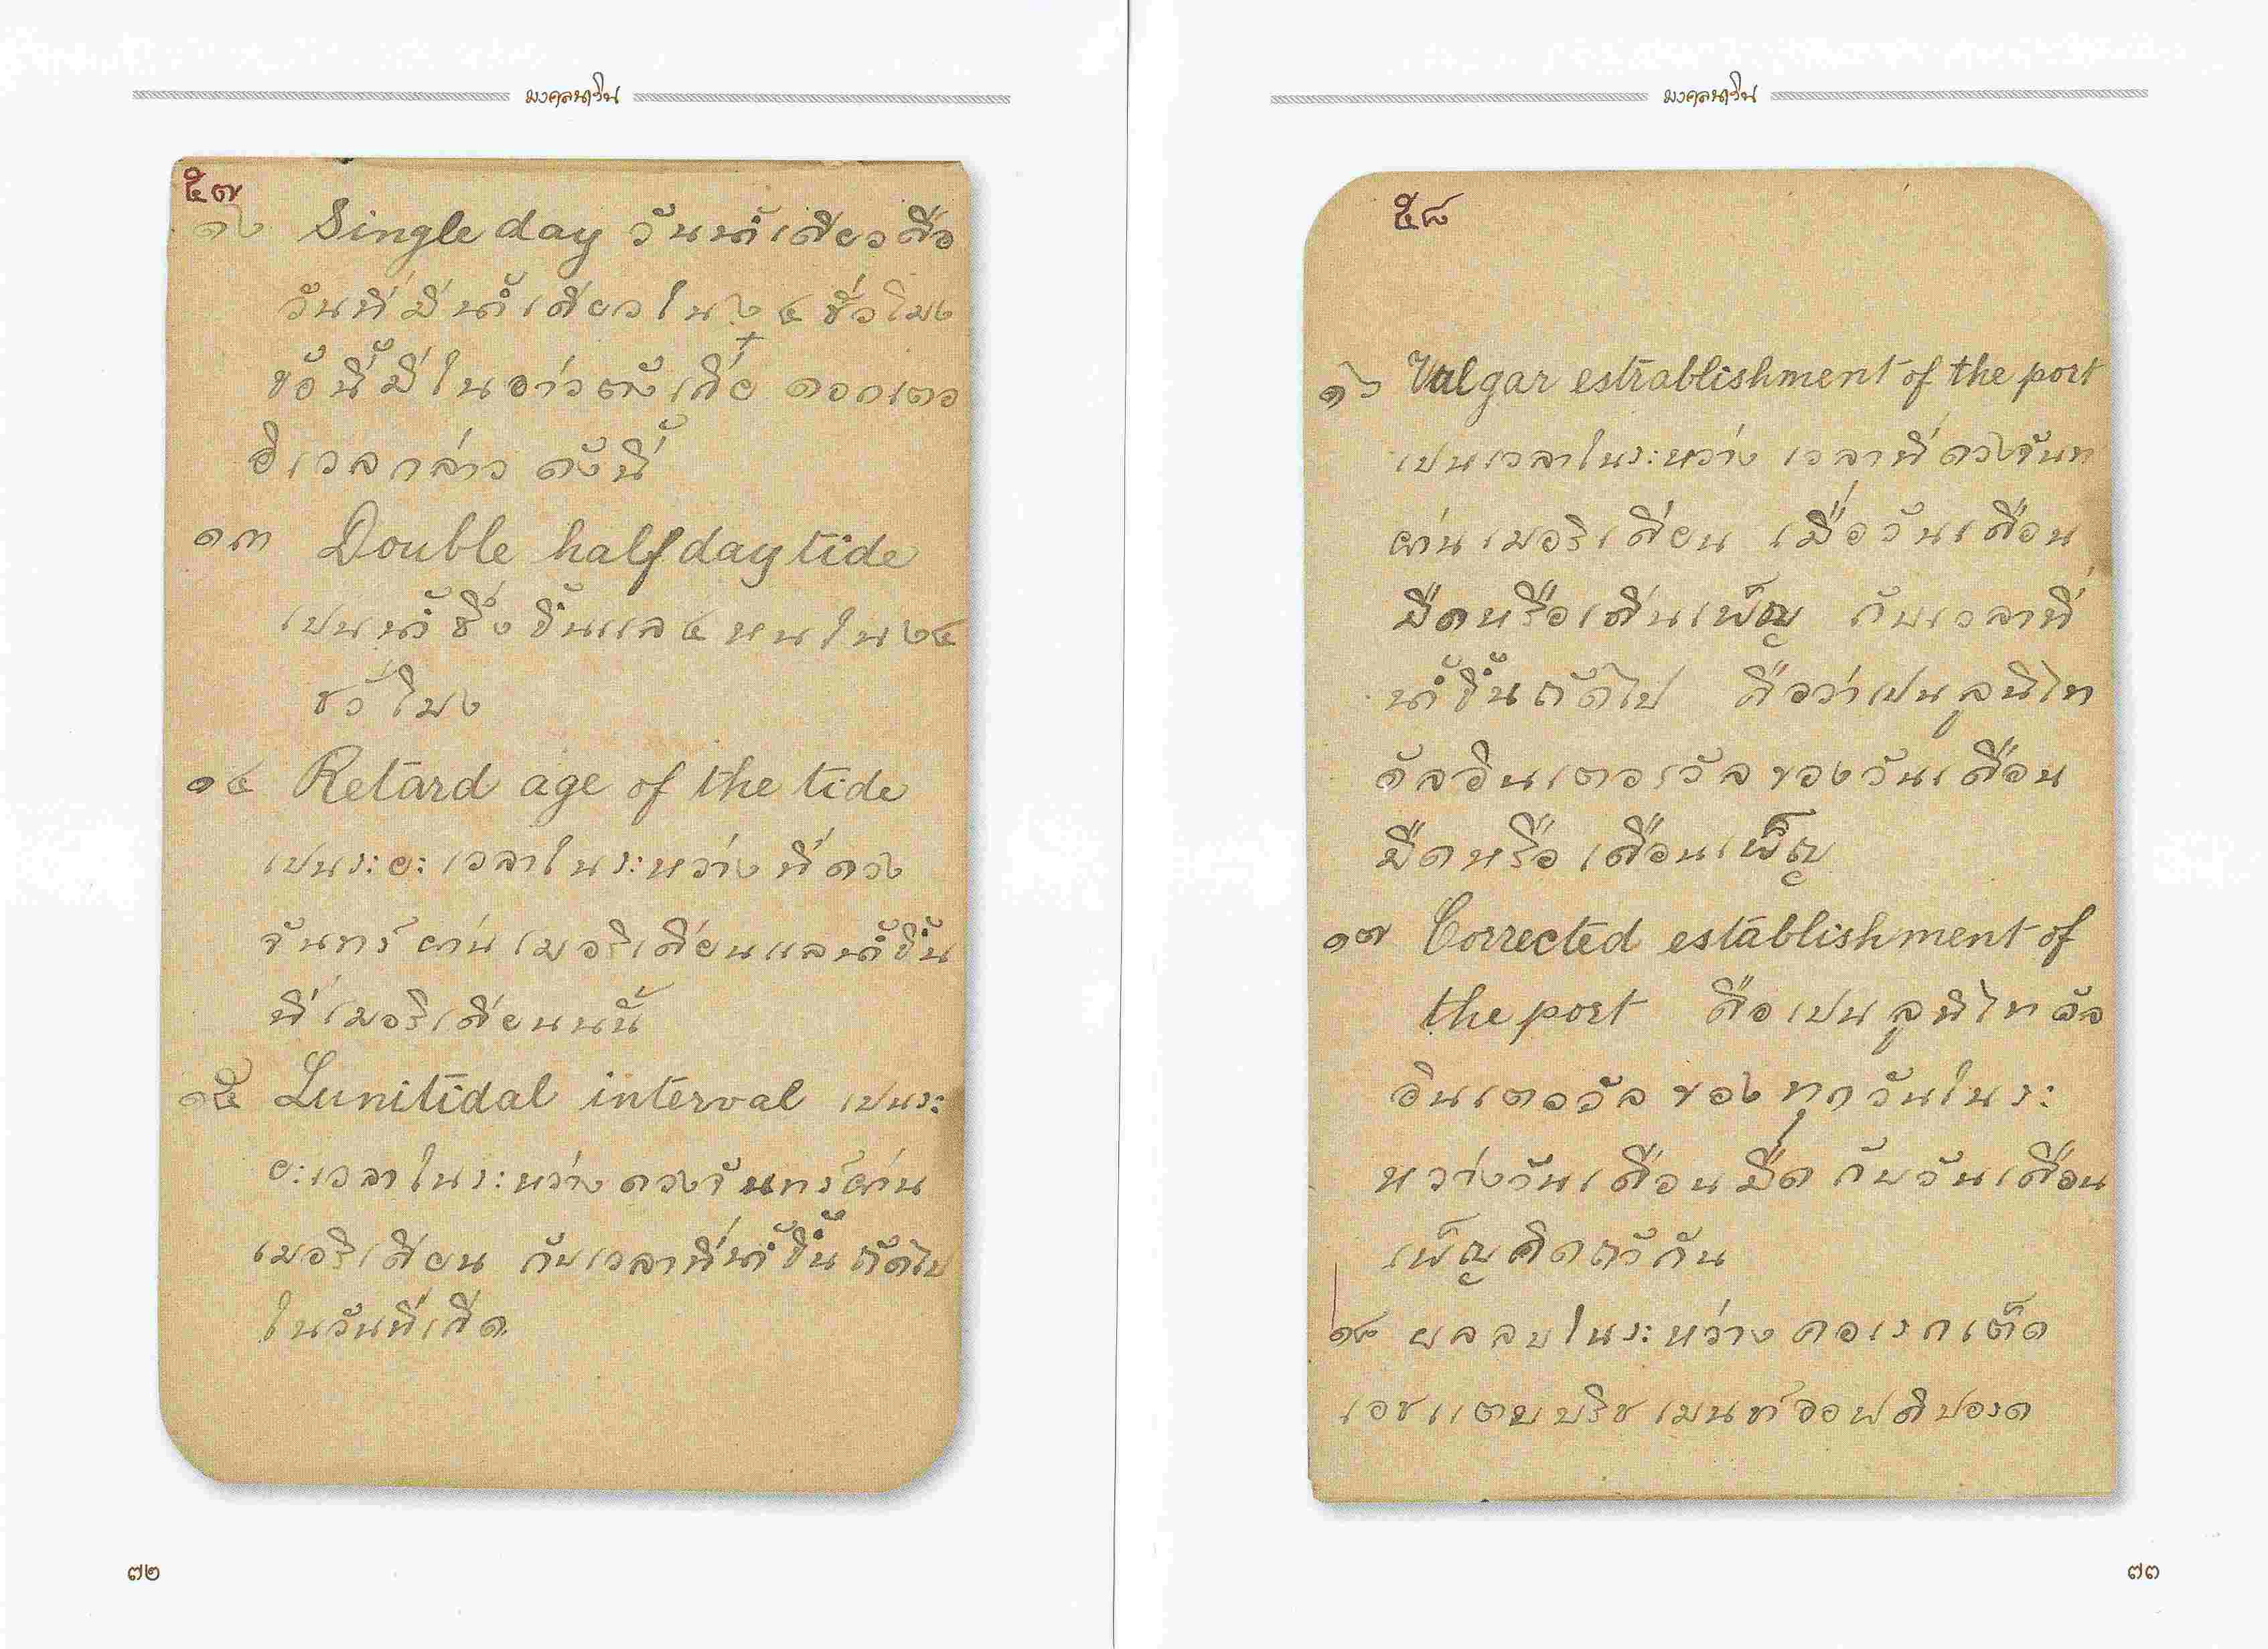 มงคลนาวิน
๕๗
๑๒ Single day วันน้ำเดียวคือ
วันที่มีน้ำเดียวใน ๒๔ ชั่วโมง
ข้อนี้มีในอ่าวตังเกี๋ย ดอกเตอ
อิเวลกล่าว ดังนี้
๑๓ Double half day tide
เปนน้ำซึ่งขึ้นแล ๔ หนใน ๒๔
ชั่วโมง
๑๔ Retard age of the tide
เปนระยะเวลาในระหว่างที่ดวง
จันทร์ผ่านเมอริเดียนแลน้ำขึ้น
ที่เมอริเดียนนั้น
๑๕ Lunitidal interval เปนระ
ยะเวลาในระหว่างดวงจันทร์ผ่าน
เมอริเดียน กับเวลาที่น้ำขึ้นถัดไป
ในวันที่เกิด
๗๒
มงคลนาวิน
๕๘
๑๖ Valgar establishment of the port
เปนเวลาในระหว่าง เวลาที่ดวงจันท
ผ่านเมอริเดียน เมื่อวันเดือน
มืดหรือเดินเพ็ญ กับเวลาที่
น้ำขึ้นถัดไป คือว่าเปนลูนิไท
ดัลอินเตอเวัลของวันเดือน
มืดหรือเดือนเพ็ญ
๑๗ Corrected establishment of
the port คือเปนลูนิไทดัล
อินเตอวัลของทุกวันในระ
หว่างวันเดือนมืดกับวันเดือน
เพ็ญคิดถัวกัน
๑๘ ผลลบในระหว่าง คอเรกเต็ด
เอซแตบบริชเมนท์ออฟดิปอรต
๗๓